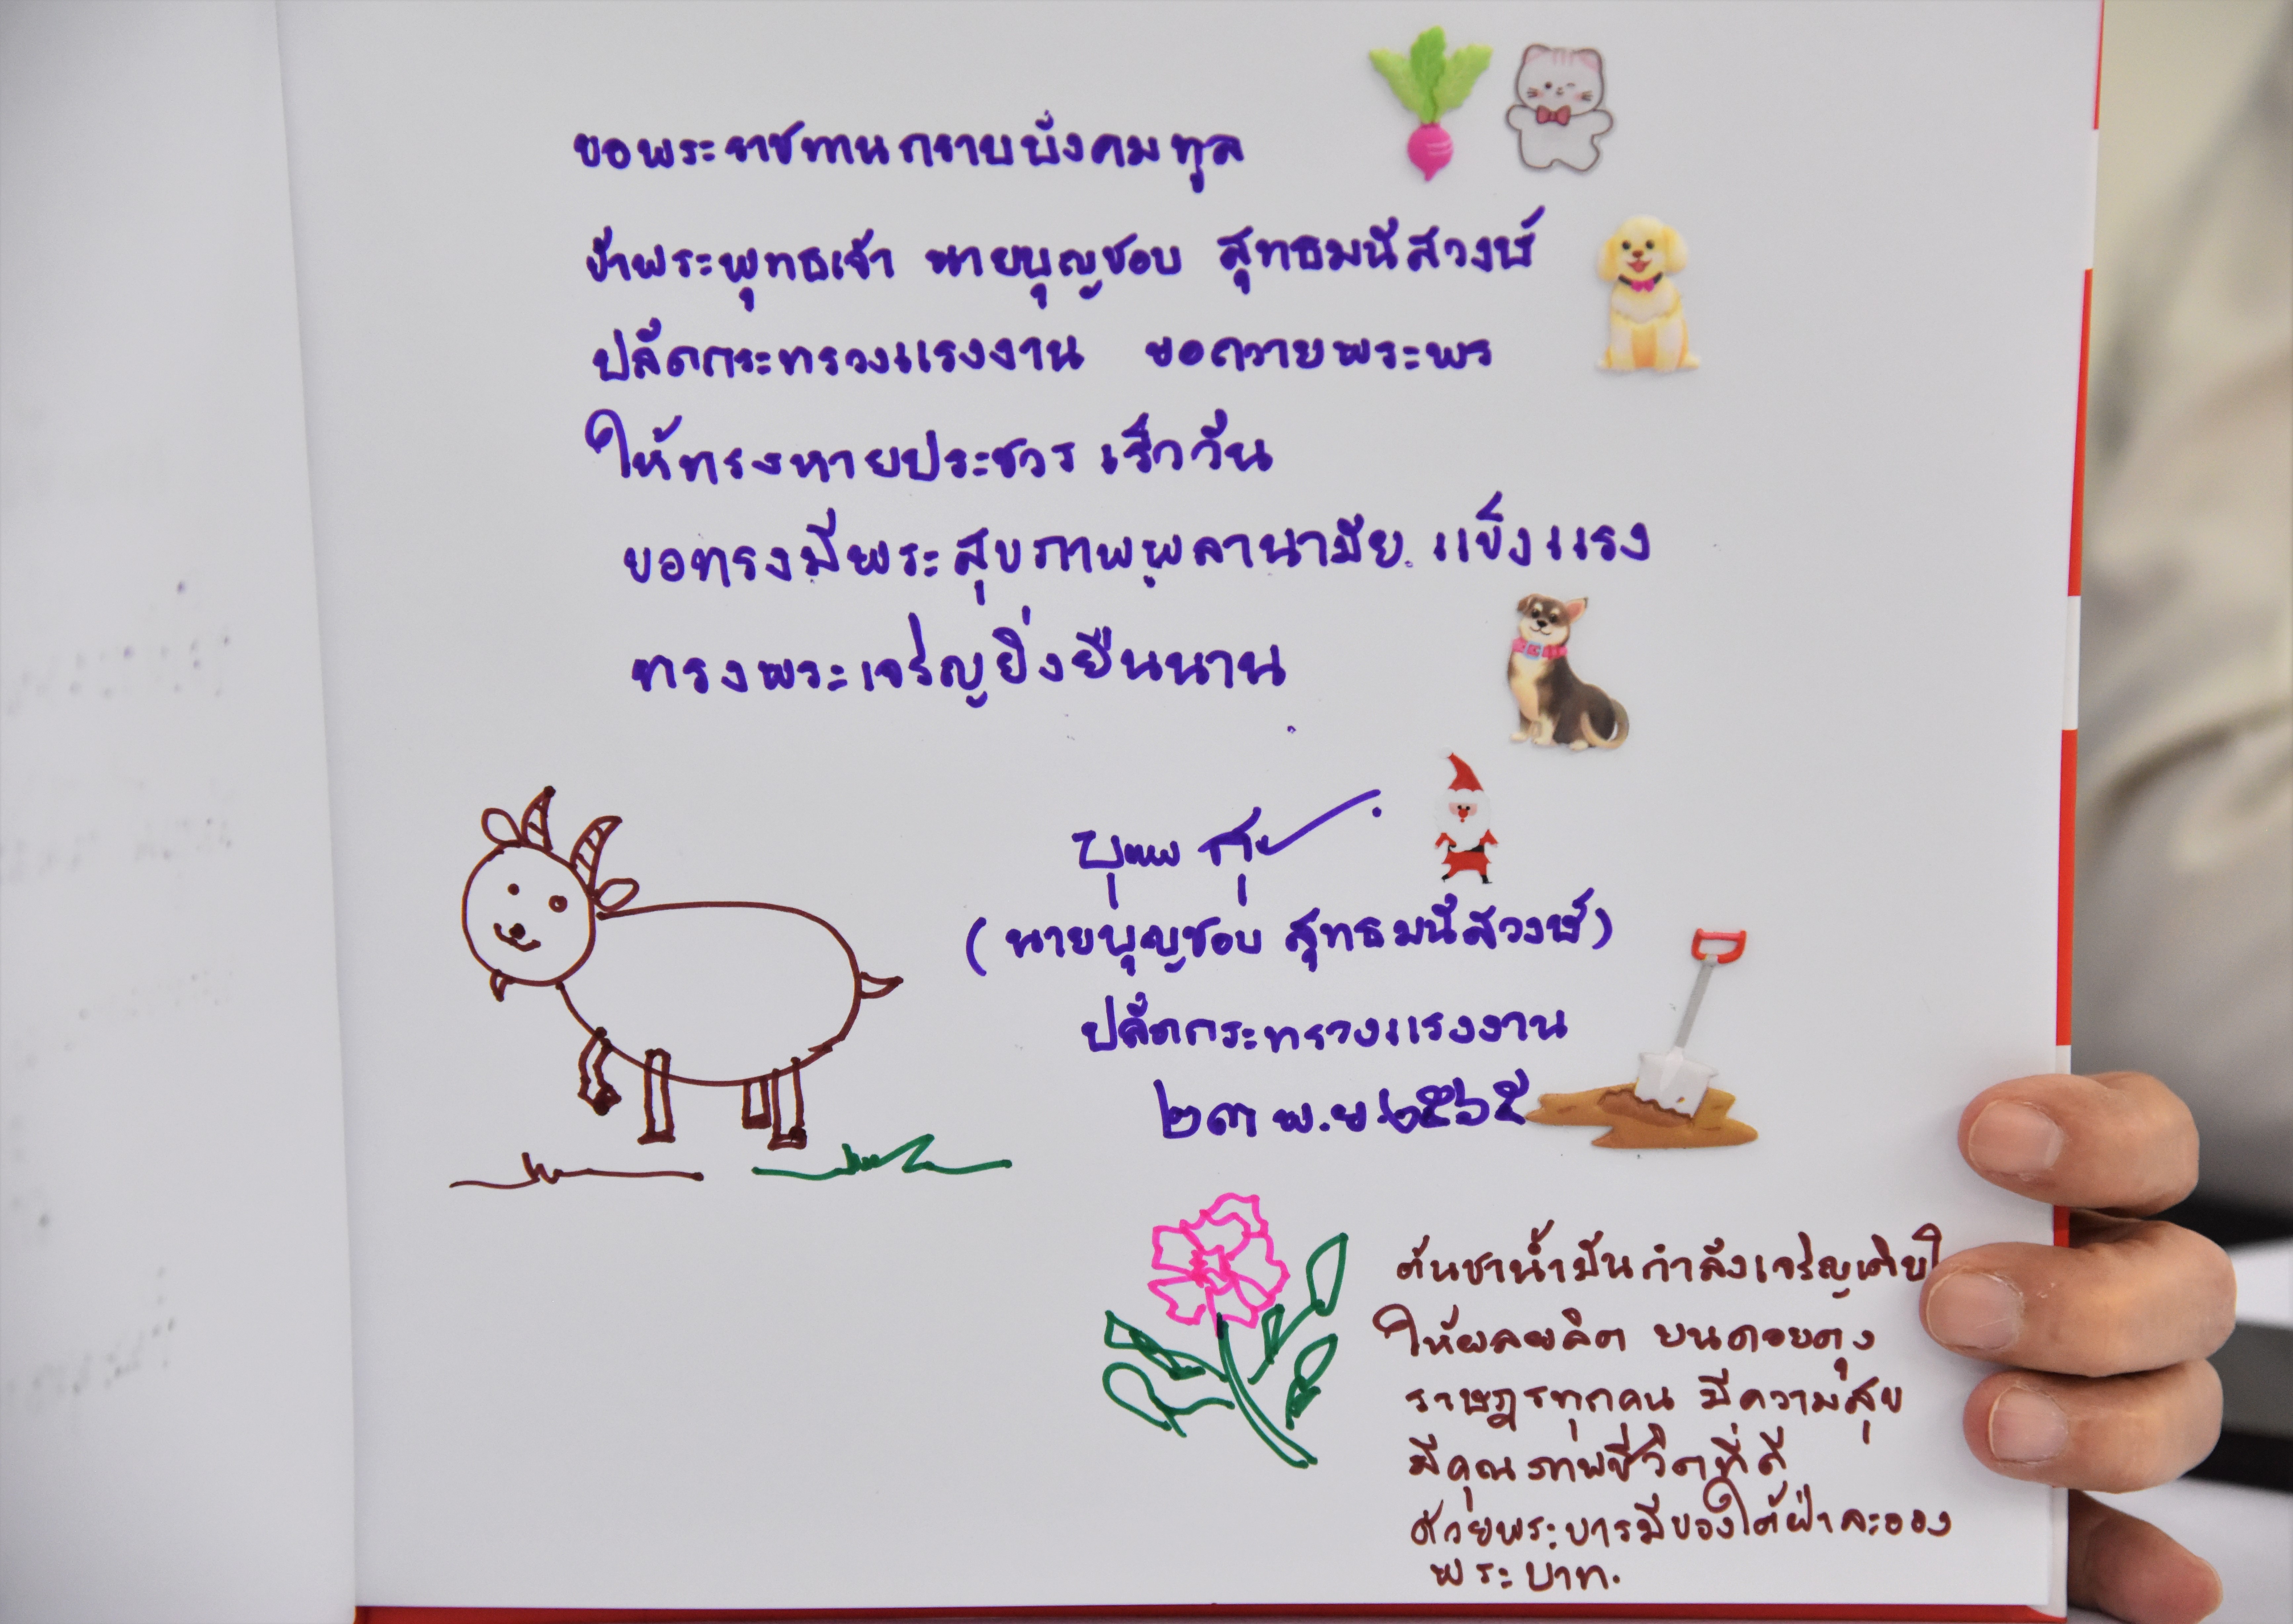 ขอพระราชทานกราบบังคมทูล
ข้าพระพุทธเจ้า นายบุญชอบ สุทธมนัสวงษ์
ปลัดกระทรวงแรงงาน ขอถวายพระพร
ให้ทรงหายประชวร เร็ววัน
ขอทรงมีพระสุขภาพพลานามัย แข็งแรง
ทรงพระเจริญยิ่งยืนนาน
(นายบุญชอบ สุทธมนัสวงษ์)
ปลัดกระทรวงแรงงาน
๒๓ พ.ย. ๒๕๖๕
ต้นชาน้ำมันกำลังเจริญเติบ
ให้ผลผลิต บนดอยตุง
ราษฎรทุกคน มีความสุข
มีคุณภาพชีวิตที่ดี
ด้วยพระบารมีของใต้ฝ่าละออง
พระบาท.